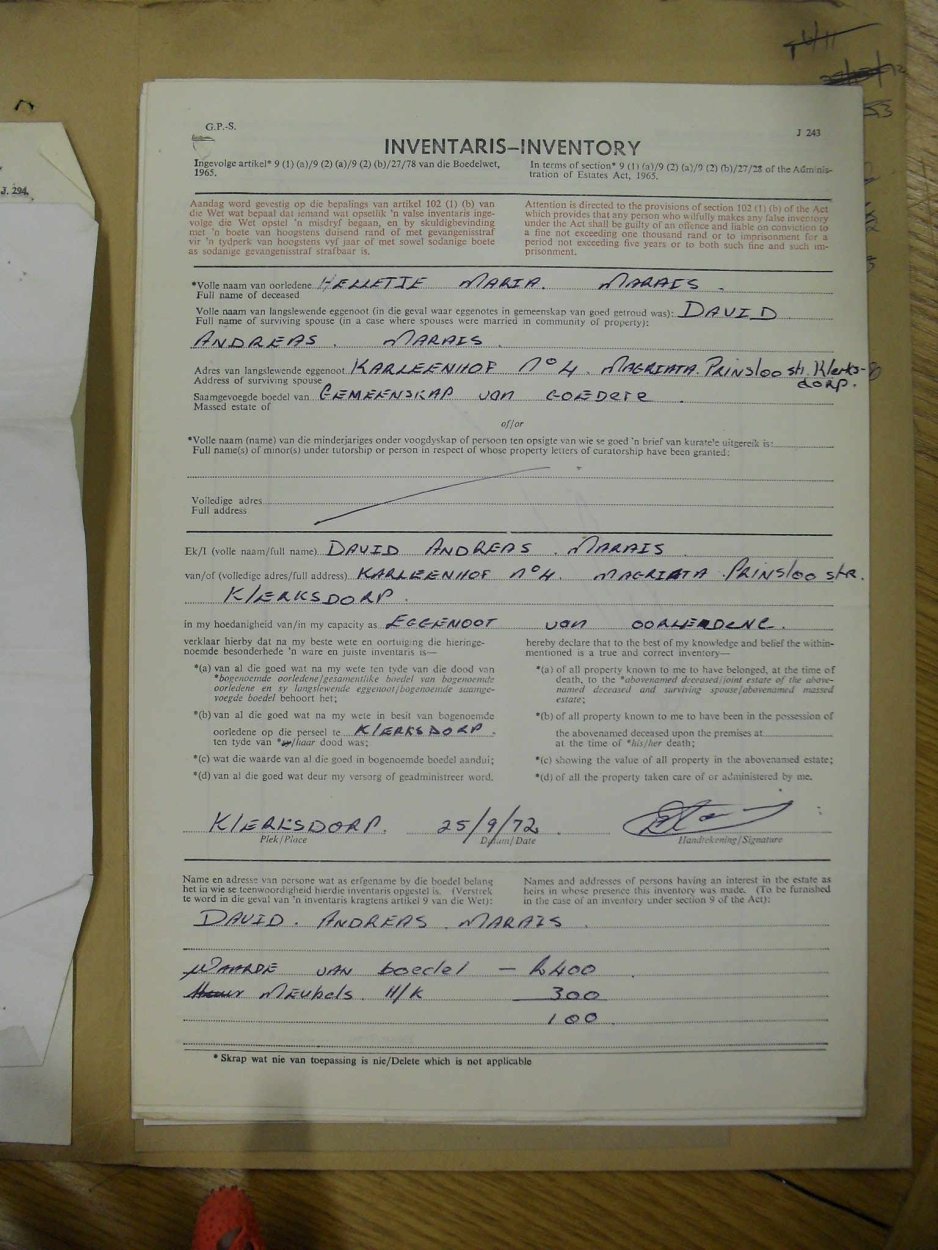 J. 294.
G.P.-S.
J 243
INVENTARIS–INVENTORY
Ingevolge artikel* 9 (1) (a)/9 (2) (a)/9 (2) (b)/27/78 van die Boedelwet, 1965.
In terms of section* 9 (1) (a)/9 (2) (a)/9 (2) (b)/27/28 of the Adminis-
tration of Estates Act, 1965.
Aandag word gevestig op die bepalings van artikel 102 (1) (b) van
die Wet wat bepaal dat iemand wat opsetlik 'n valse inventaris inge-
volge die Wet opstel 'n misdryf begaan, en by skuldigbevinding
met 'n boete van hoogstens duisend rand of met gevangenisstraf
vir 'n tydperk van hoogstens vyf jaar of met sowel sodanige boete
as sodanige gevangenisstraf strafbaar is.
Attention is directed to the provisions of section 102 (1) (b) of the Act
which provides that any person who wilfully makes any false inventory
under the Act shall be guilty of an offence and liable on conviction to
a fine not exceeding one thousand rand or to imprisonment for a
period not exceeding five years or to both such fine and such im-
prisonment.
*Volle naam van oorledene HELLETJE MARIA. MARAIS.
Full name of deceased
Volle naam van langslewende eggenoot (in die geval waar eggenotes in gemeenskap van goed getroud was): DAVID
Full name of surviving spouse (in a case where spouses were married in community of property):
ANDREAS. MARAIS.
Adres van langslewende eggenoot KARLEENHOF No 4. MAGRIATA PRINSLOO str. Klerks-
dorp.
Address of surviving spouse
Saamgevoegde boedel van GEMEENSKAP van GOEDERE
Massed estate of
of/or
*Volle naam (name) van die minderjariges onder voogdyskap of persoon ten opsigte van wie se goed 'n brief van kurate'e uitgereik is:
Full name(s) of minor(s) under tutorship or person in respect of whose property letters of curatorship have been granted:
Volledige adres
Full address
Ek/I (volle naam/full name) DAVID ANDREAS. MARAIS
van/of (volledige adres/full address) KARLEENHOF No 4. MAGRIATA PRINSLOO str.
KLERKSDORP.
in my hoedanigheid van/in my capacity as EGGENOOT van OORLEDENE.
verklaar hierby dat na my beste wete en oortuiging die hieringe-
noemde besonderhede 'n ware en juiste inventaris is—
hereby declare that to the best of my knowledge and belief the within-
mentioned is a true and correct inventory—
*(a) van al die goed wat na my wete ten tyde van die dood van
*bogenoemde oorledene/gesamentlike boedel van bogenoemde
oorledene en sy langslewende eggenoot/bogenoemde saamge-
voegde boedel behoort het;
*(a) of all property known to me to have belonged, at the time of
death, to the *abovenamed deceased/joint estate of the above-
named deceased and surviving spouse/abovenamed massed
estate;
*(b) van al die goed wat na my wete in besit van bogenoemde
oorledene op die perseel te KLERKSDORP.
ten tyde van *sy/haar dood was;
*(b) of all property known to me to have been in the possession of
the abovenamed deceased upon the premises at
at the time of *his/her death;
*(c) wat die waarde van al die goed in bogenoemde boedel aandui;
*(c) showing the value of all property in the abovenamed estate;
*(d) van al die goed wat deur my versorg of geadministreer word.
*(d) of all the property taken care of or administered by me.
KLERKSDORP. 25/9/72
Plek/Place Datum/Date Handtekening/Signature
Name en adresse van persone wat as erfgename by die boedel belang
het in wie se teenwoordigheid hierdie inventaris opgestel is. (Verstrek
te word in die geval van 'n inventaris kragtens artikel 9 van die Wet):
Names and addresses of persons having an interest in the estate as
heirs in whose presence this inventory was made. (To be furnished
in the case of an inventory under section 9 of the Act):
DAVID. ANDREAS. MARAIS
WAARDE van boedel — R400
MEUbels H/K 300
100
* Skrap wat nie van toepassing is nie/Delete which is not applicable